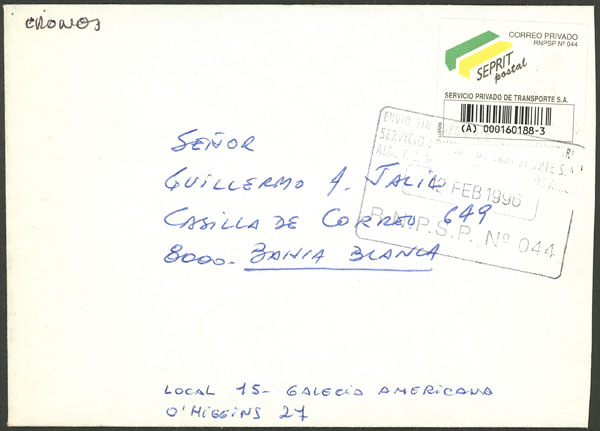 CRONOS
CORREO PRIVADO
RNPSP Nº 044
SEPRIT
postal
SERVICIO PRIVADO DE TRANSPORTE S.A.
(A) 000160188-3
ENVIO SIN
SERVICIO
12 FEB 1996
R.N.P.S.P. Nº 044
SEÑOR
GUILLERMO A. JALIL
CASILLA DE CORREO 649
8000. BAHIA BLANCA
LOCAL 15- GALECIA AMERICANA
O'HIGGINS 27